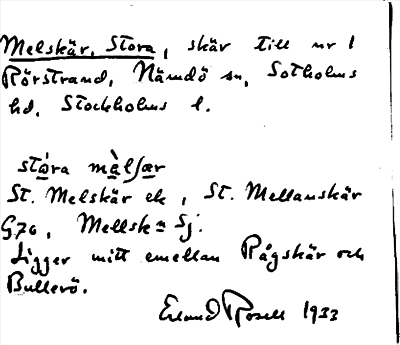 Melskär, Stora, skär till nr 1
Rörstrand, Nämdö sn, Sotholms
hd, Stockholms l.
stóra mèlʃær
St. Melskär ek, St. Mellanskär
G70, Mellsk= Sj.
Ligger mitt emellan Rågskär och
Bullerö.
Erland Rosell 1933